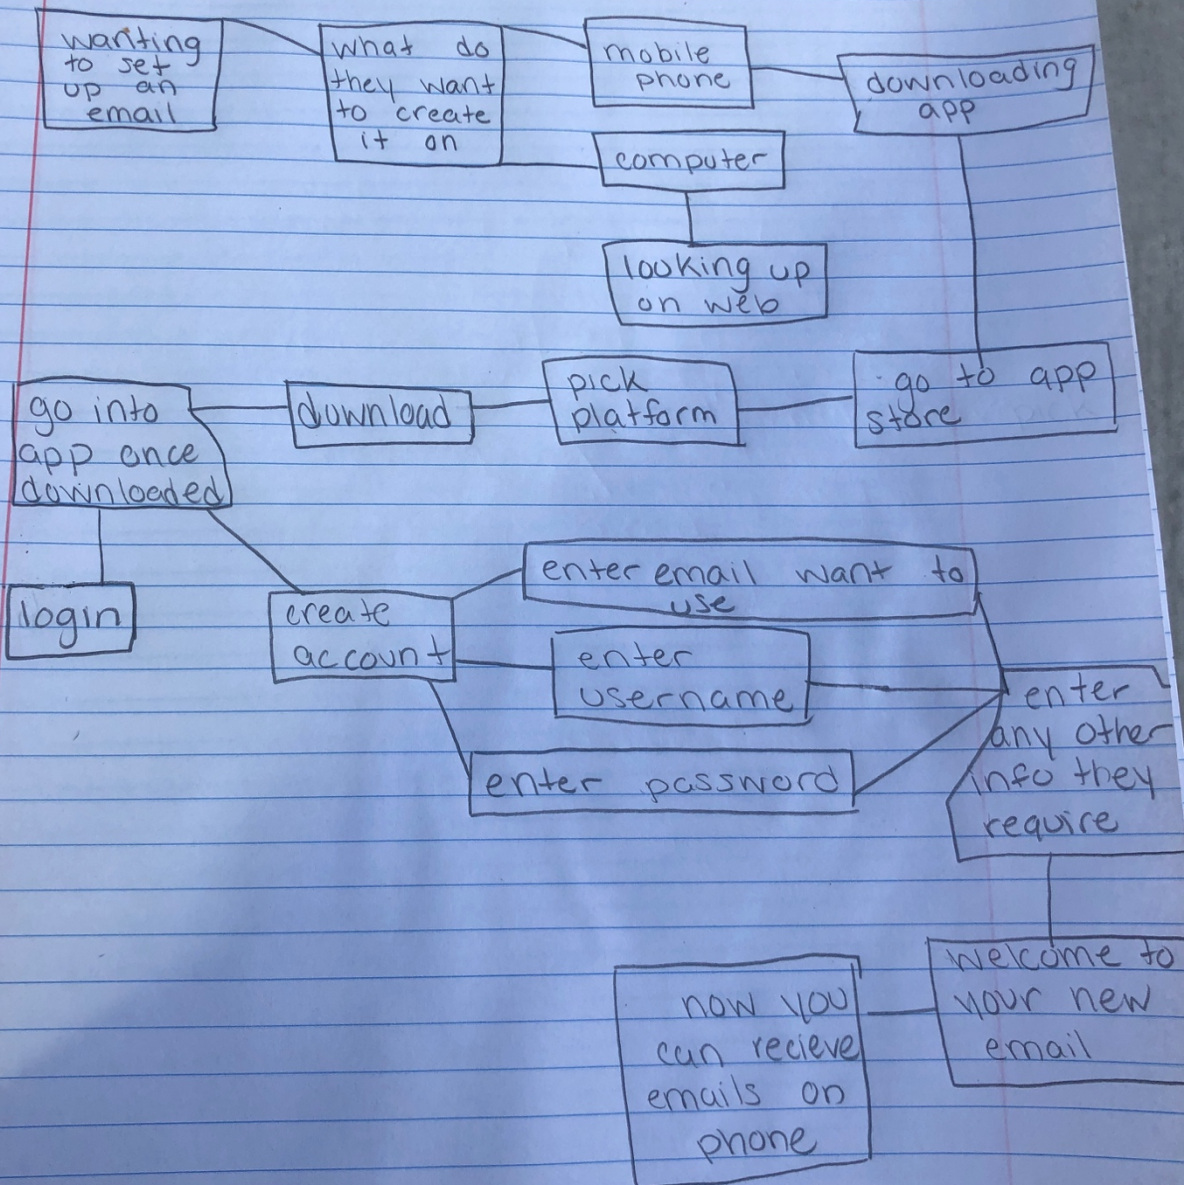 wanting
to set
up an
email
what do
they want
to create
it on
mobile
phone
downloading
app
computer
looking up
on web
go to app
store
pick
platform
download
go into
app once
downloaded
login
create
account
enter email want to
use
enter
username
enter password
enter
any other
info they
require
welcome to
your new
email
now you
can recieve
emails on
phone